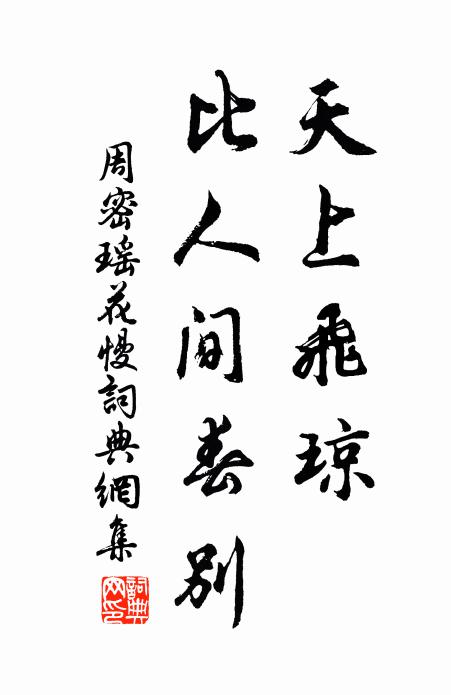 天上飛琼
比人間春別
周密瑶花慢詞典網集
詞典網印